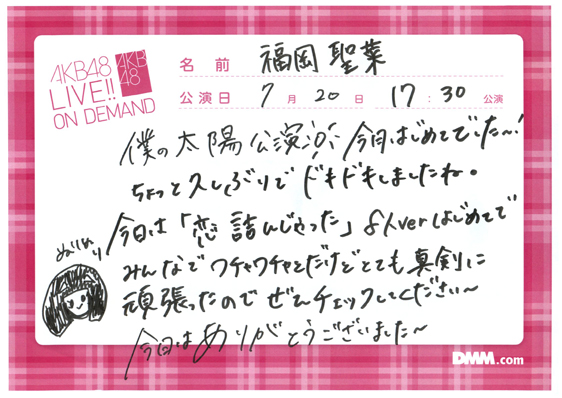 AKB48
LIVE!!
ON DEMAND
AKB
48
名前 福岡聖菜
公演日 7月20日 17:30 公演
僕の太陽公演 今月はじめてでした〜!
ちょっと久しぶりでドキドキしましたね。
今日は「恋詰んじゃった」8人verはじめてで
みんなでワチャワチャとだけどとても真剣に
頑張ったのでぜひチェックしてください〜
今日はありがとうございました〜
DMM.com